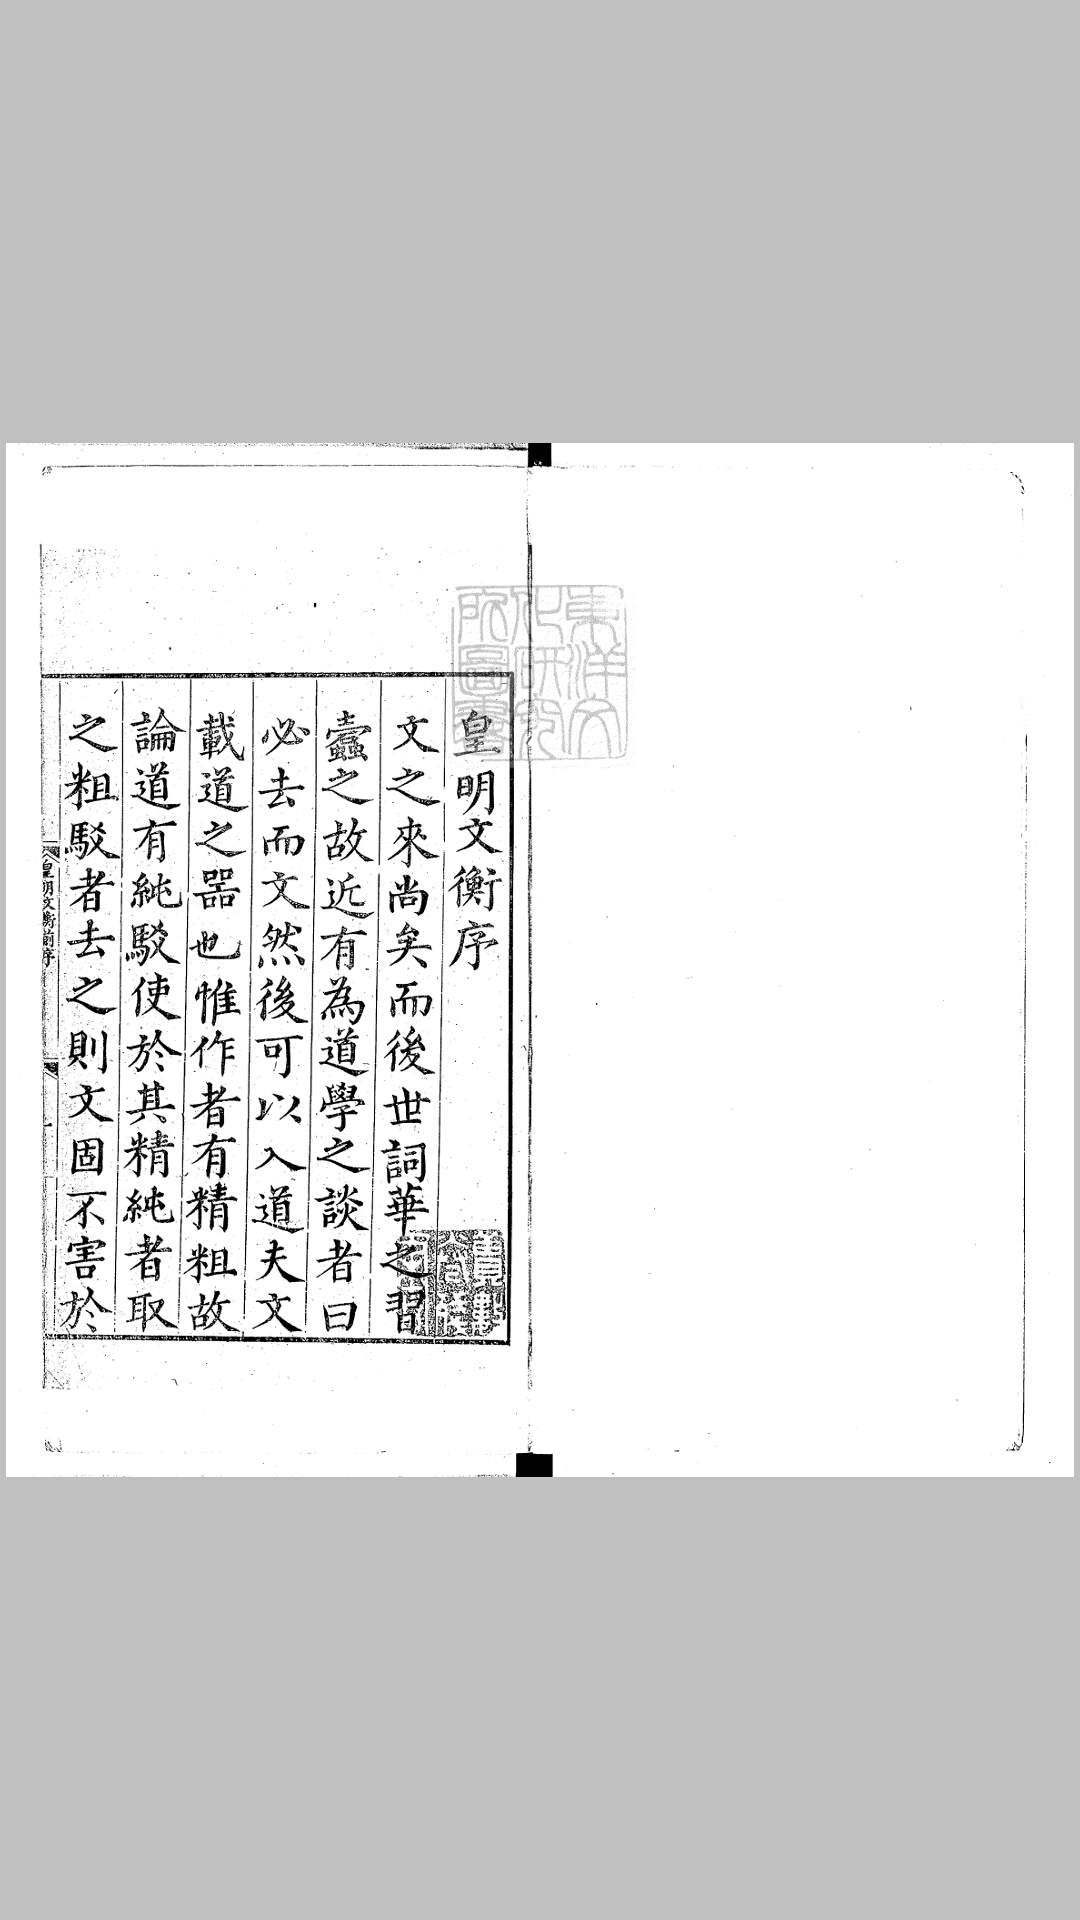 皇明文衡序
文之來尚矣而後世詞華之習
蠹之故近有為道學之談者曰
必去而文然後可以入道夫文
載道之器也惟作者有精粗故
論道有純駁使於其精純者取
之粗駁者去之則文固不害於
皇朝文衡前序
東洋文
化研究
所圖書